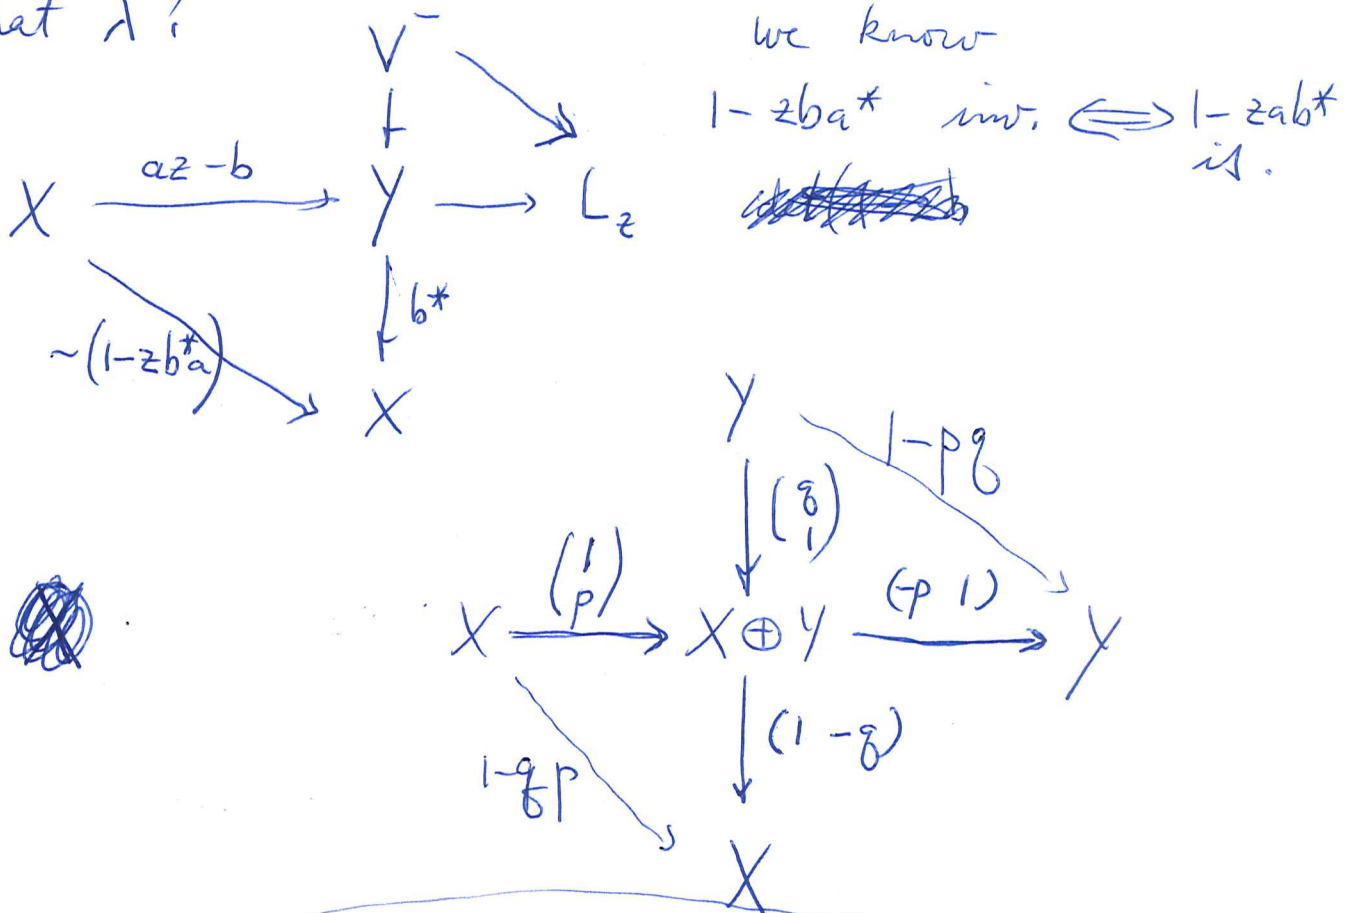 at λ?
V⁻
we know
1 - zba* inv. ⟺ 1 - zab*
is.
az - b
X Y L_z
b*
~(1 - zb*a)
X
Y
1 - pq
(q 1)
(1 p)
(-p 1)
X X ⊕ Y Y
(1 -q)
1 - qp
X